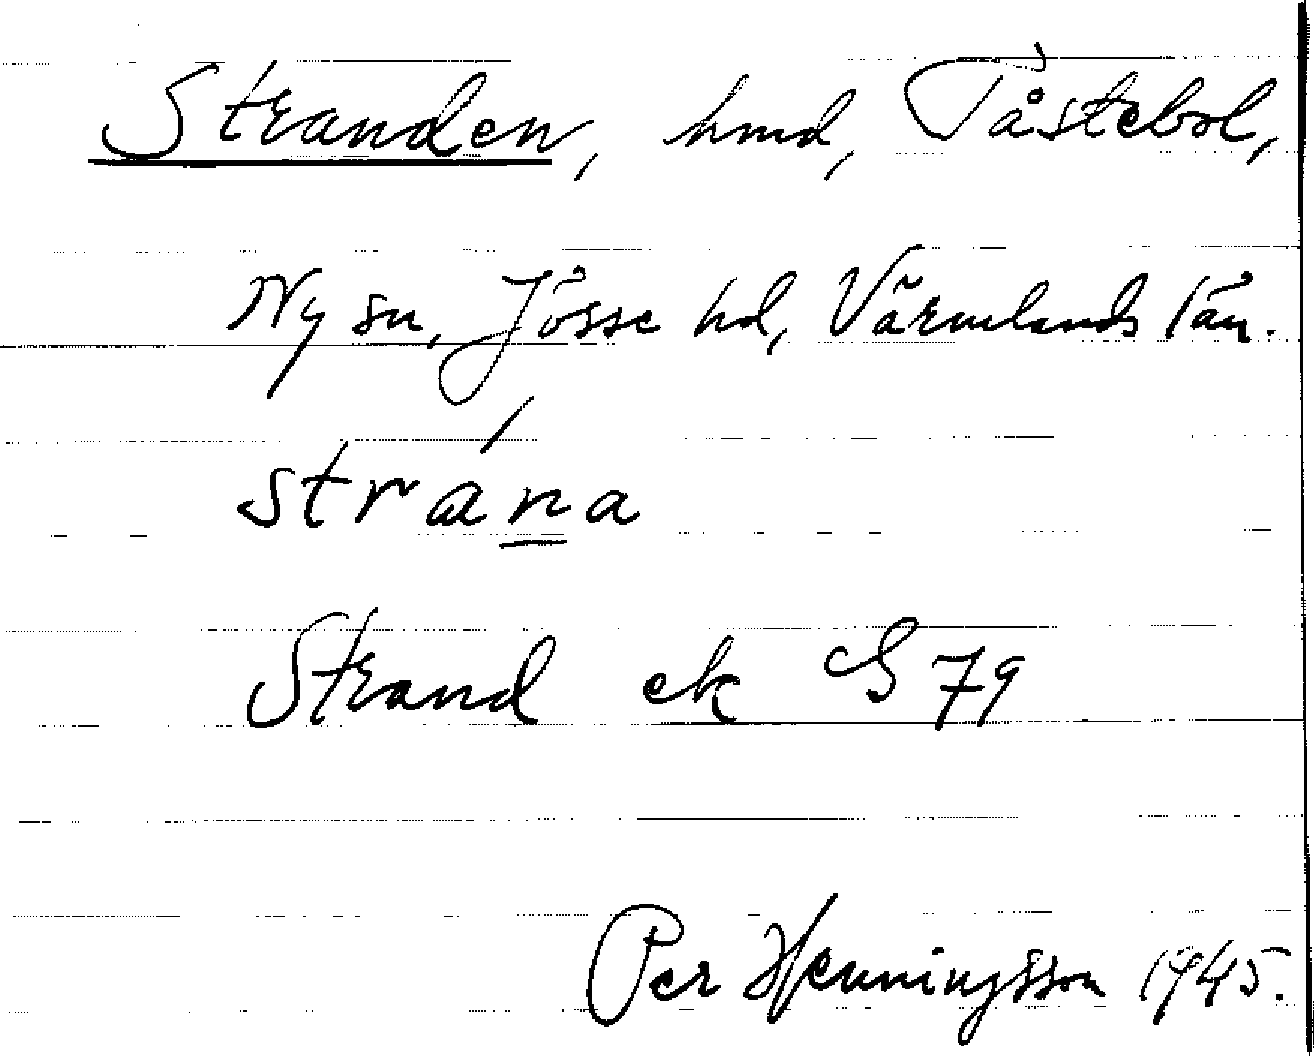 Stranden, hmd, Tåstebol,
Ny sn, Jösse hd, Värmlands län.
strána
Strand ek S 79
Per Henningsson 1945.